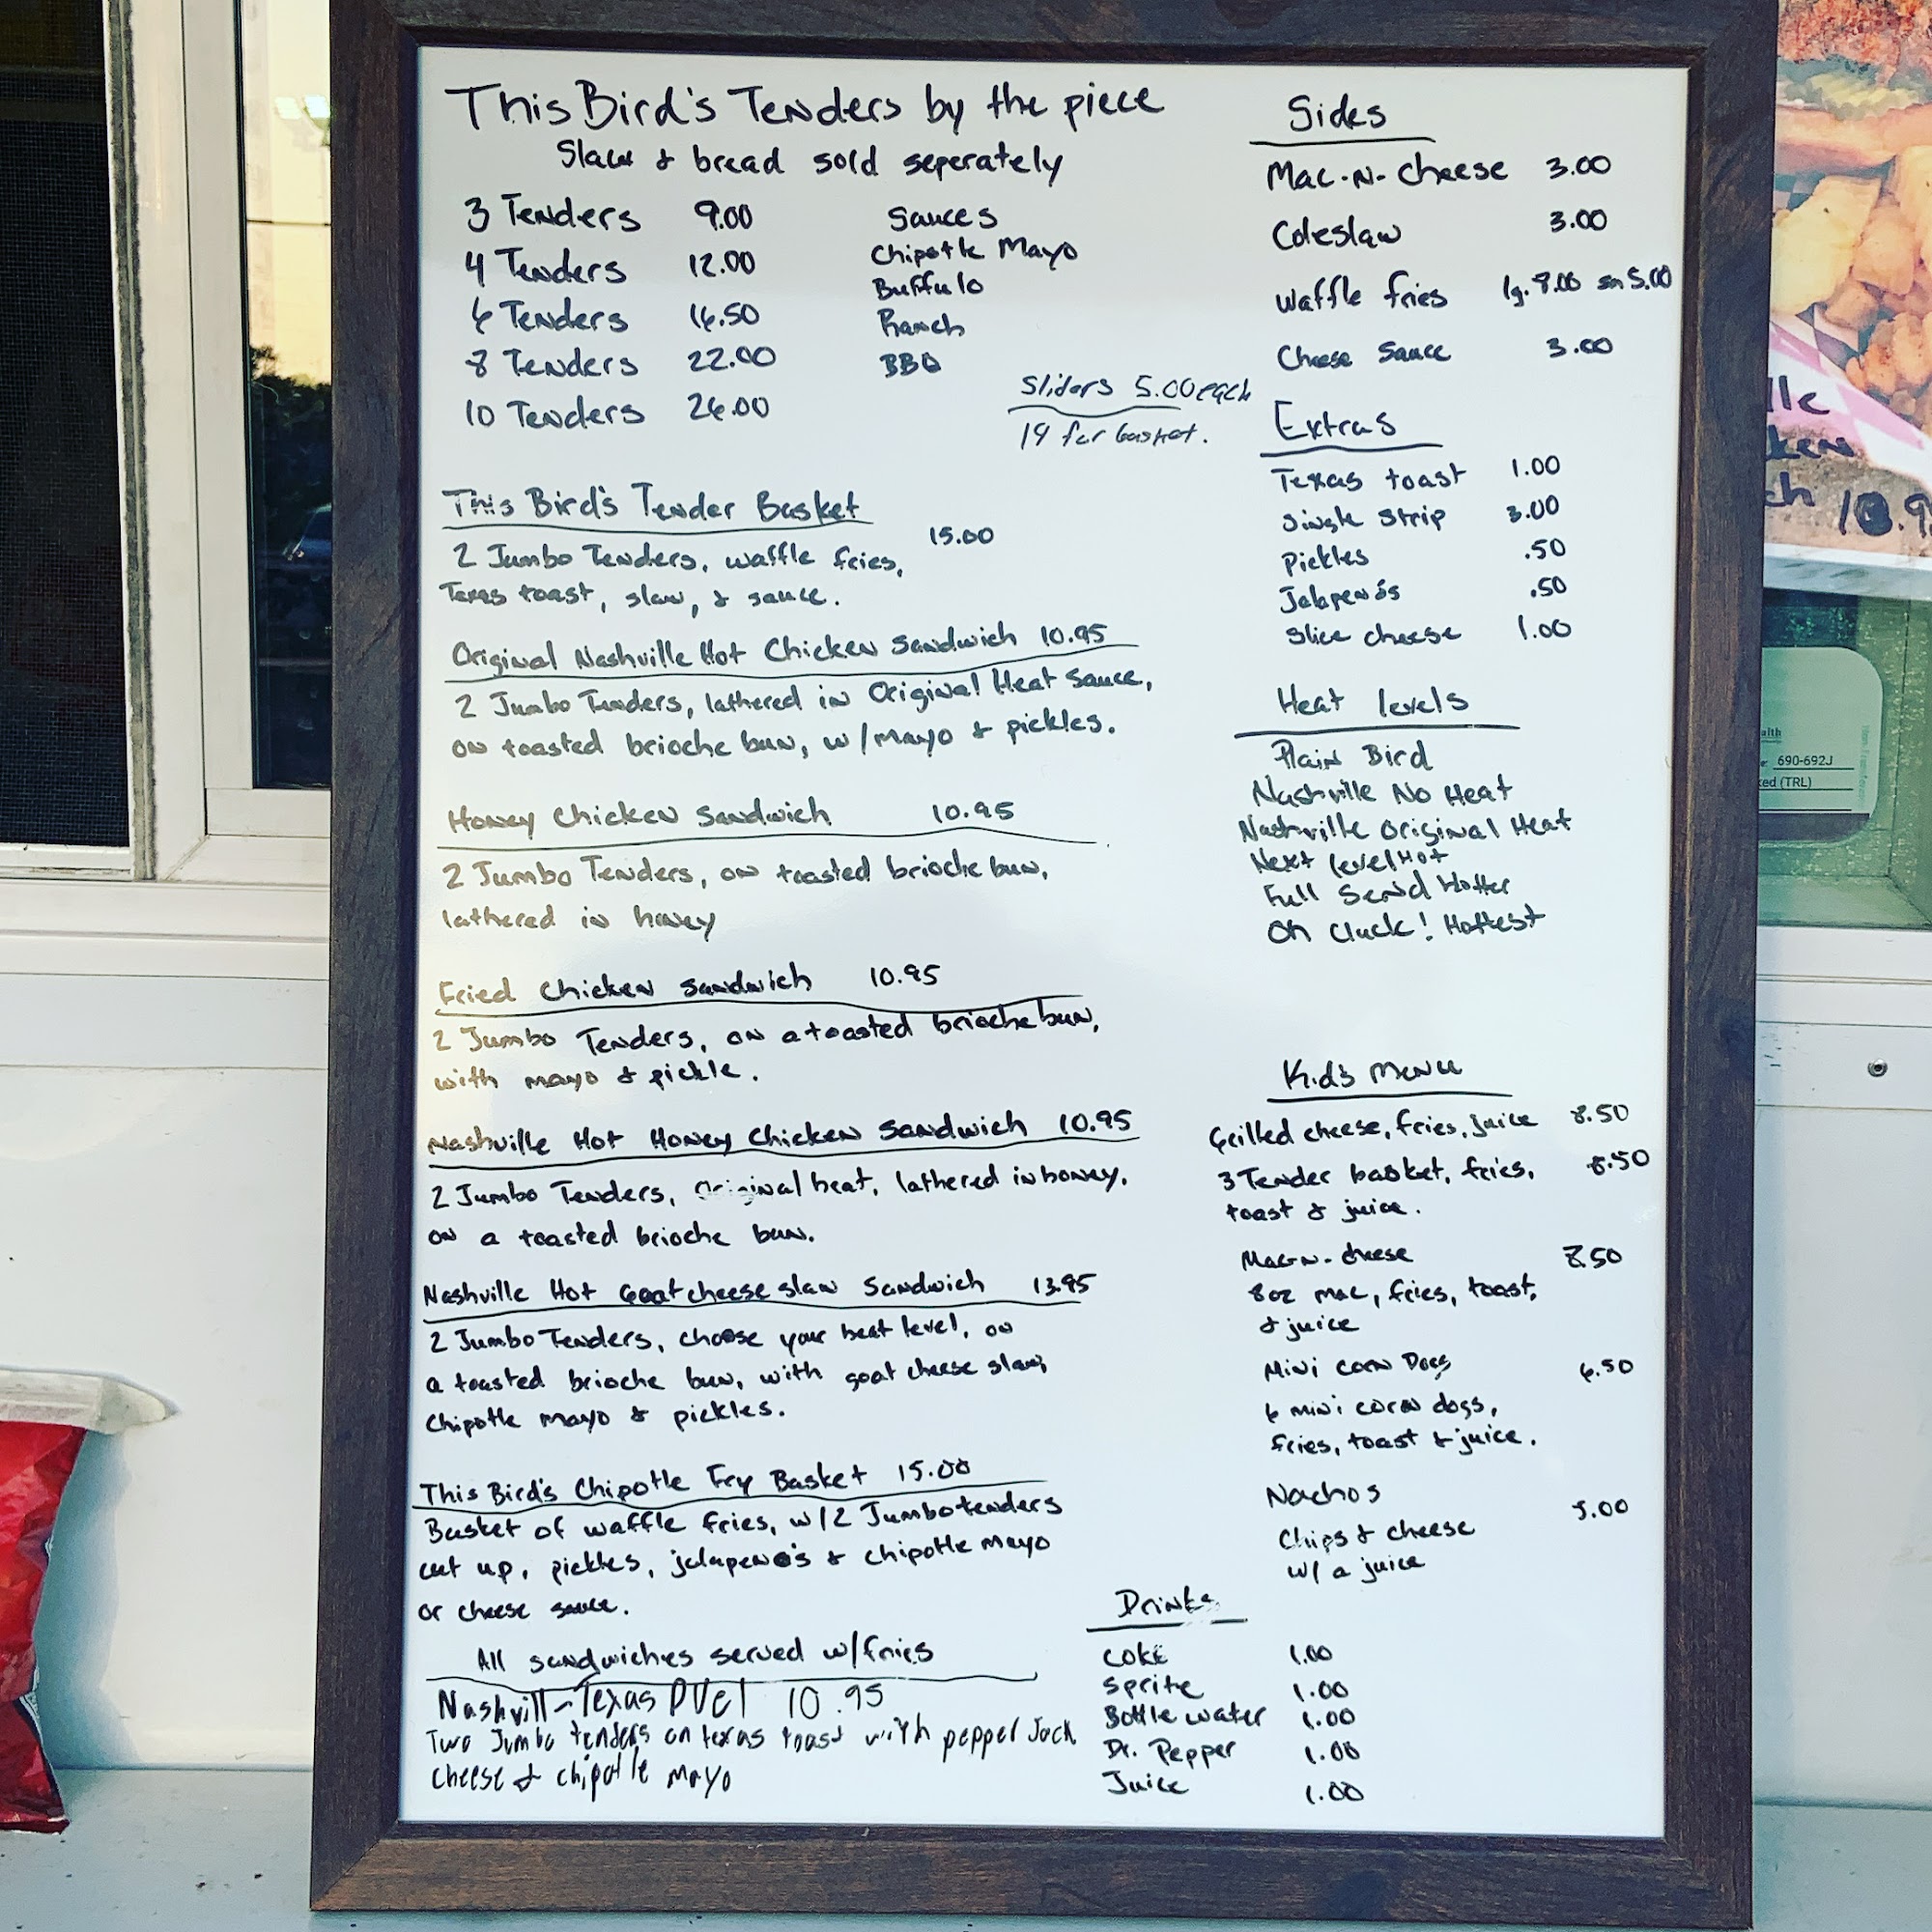 This Bird's Tenders by the piece
Slaw & bread sold seperately
3 Tenders 9.00
4 Tenders 12.00
6 Tenders 16.50
8 Tenders 22.00
10 Tenders 26.00
Sauces
Chipotle Mayo
Buffulo
Ranch
BBQ
Sliders 5.00 each
14 for basket.
This Bird's Tender Basket
15.00
2 Jumbo Tenders, waffle fries,
Texas toast, slaw, & sauce.
Original Nashville Hot Chicken Sandwich 10.95
2 Jumbo Tenders, lathered in Original Heat Sauce,
on toasted brioche bun, w/mayo & pickles.
Honey Chicken Sandwich 10.95
2 Jumbo Tenders, on toasted brioche bun,
lathered in honey
Fried Chicken Sandwich 10.95
2 Jumbo Tenders, on a toasted brioche bun,
with mayo & pickle.
Nashville Hot Honey Chicken Sandwich 10.95
2 Jumbo Tenders, Original heat, lathered in honey,
on a toasted brioche bun.
Nashville Hot Goat cheese slaw Sandwich 13.95
2 Jumbo Tenders, choose your heat level, on
a toasted brioche bun, with goat cheese slaw,
Chipotle mayo & pickles.
This Bird's Chipotle Fry Basket 15.00
Basket of waffle fries, w/2 Jumbo tenders
cut up, pickles, jalapeno's & chipotle mayo
or cheese sauce.
All sandwiches served w/fries
Nashvill-Texas DUel 10.95
Two Jumbo tenders on texas toast with pepper Jack
cheese & chipotle mayo
Sides
Mac-N-Cheese 3.00
Coleslaw 3.00
Waffle fries lg. 8.00 sm 5.00
Cheese Sauce 3.00
Extras
Texas toast 1.00
Single Strip 3.00
Pickles .50
Jalapenós .50
Slice cheese 1.00
Heat levels
Plain Bird
Nashville No Heat
Nashville Original Heat
Next level Hot
Full Send Hotter
Oh Cluck! Hottest
Kid's Menu
Grilled cheese, fries, juice 8.50
3 Tender basket, fries, 8.50
toast & juice.
Mac-n-cheese 8.50
8oz mac, fries, toast,
& juice
Mini Corn Dogs 6.50
6 mini corn dogs,
fries, toast & juice.
Nachos
Chips & cheese 5.00
w/ a juice
Drinks
Coke 1.00
Sprite 1.00
Bottle water 1.00
Dr. Pepper 1.00
Juice 1.00
690-692J
(TRL)